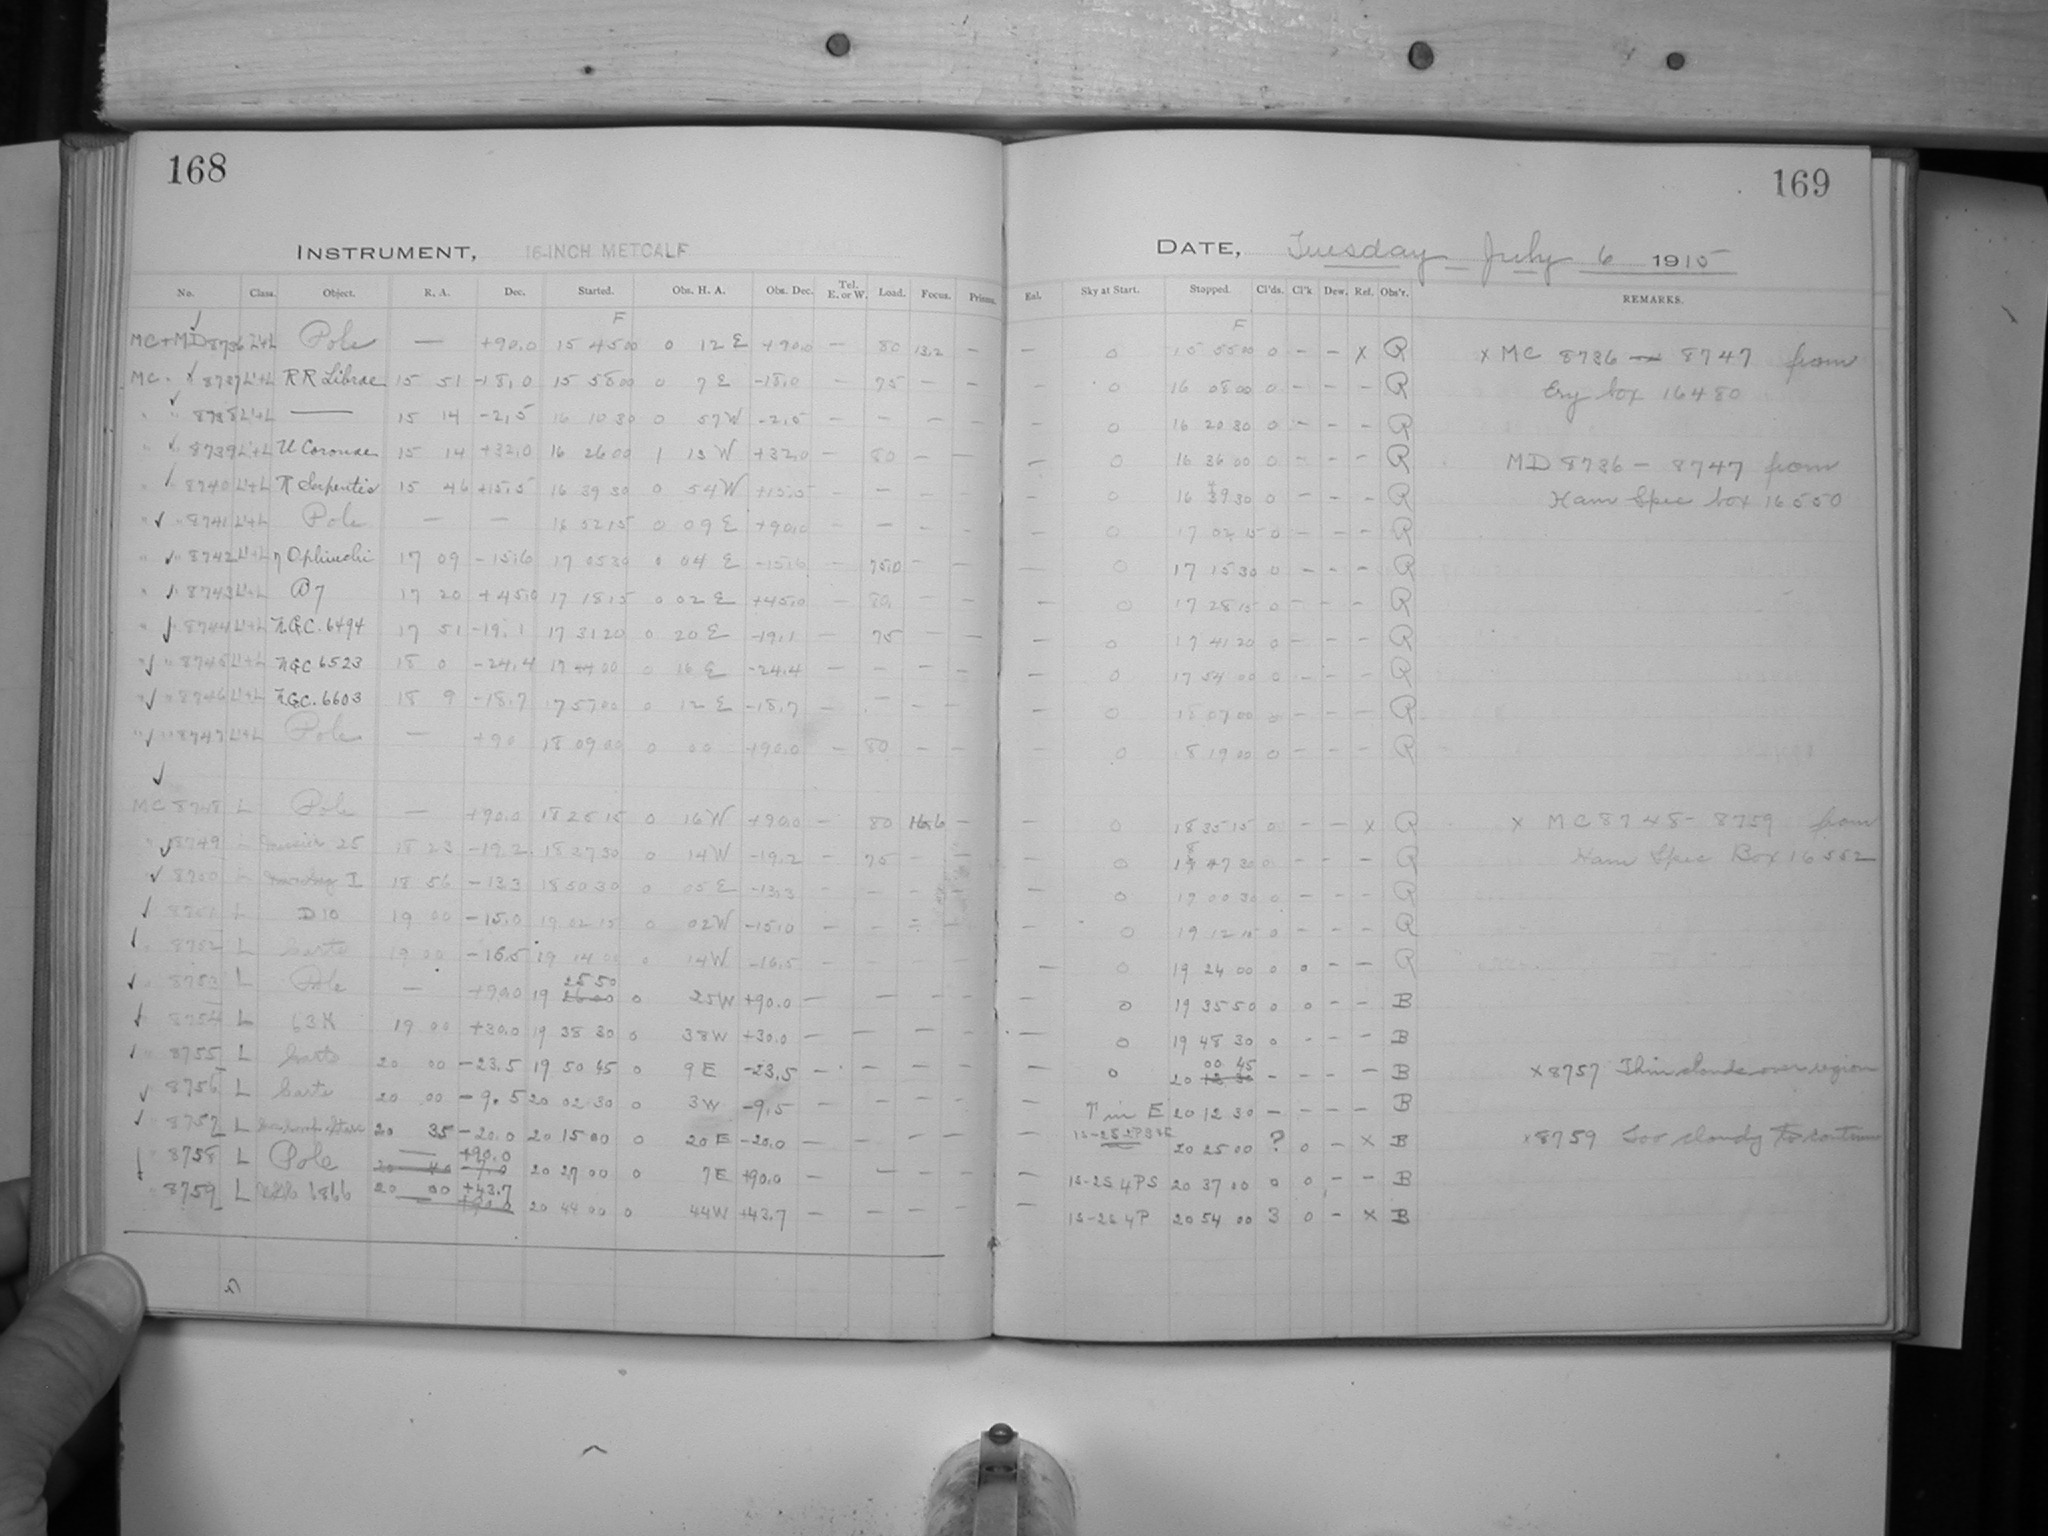 168
INSTRUMENT, 16-INCH METCALF
No. Class. Object. R. A. Dec. Started. Obs. H. A. Obs. Dec. Tel. E. or W. Load. Focus. Prisms.
F
MC+MD 8736 L'+L Pole — +90.0 15 45 00 0 12 E +90.0 — 80 13.2 —
MC " 8737 L'+L RR Librae 15 51 -18.0 15 58 00 0 7 E -18.0 — 75 — —
" " 8738 L'+L — 15 14 -2.5 16 10 30 0 57 W -2.5 — — — —
" " 8739 L'+L U Coronae 15 14 +32.0 16 26 00 1 13 W +32.0 — 80 — —
" " 8740 L'+L R Serpentis 15 46 +15.5 16 39 30 0 54 W +15.5 — — — —
" " 8741 L'+L Pole — — 16 52 15 0 09 E +90.0 — — — —
" " 8742 L'+L η Ophiuchi 17 09 -15.6 17 05 30 0 04 E -15.6 — 75.0 — —
" " 8743 L'+L B7 17 20 +45.0 17 18 15 0 02 E +45.0 — 80 — —
" " 8744 L'+L N.G.C. 6494 17 51 -19.1 17 31 20 0 20 E -19.1 — 75 — —
" " 8745 L'+L N.G.C. 6523 18 0 -24.4 17 44 00 0 16 E -24.4 — — — —
" " 8746 L'+L N.G.C. 6603 18 9 -18.7 17 57 00 0 12 E -18.7 — — — —
" " 8747 L'+L Pole — +90 18 09 00 0 00 +90.0 — 80 — —
MC 8748 L Pole — +90.0 18 25 15 0 16 W +90.0 — 80 16.6 —
" 8749 Messier 25 18 23 -19.2 18 37 30 0 14 W -19.2 — 75 — —
" 8750 I 18 56 -13.3 18 50 30 0 05 E -13.3 — — — —
" 8751 L D10 19 00 -15.0 19 02 15 0 02 W -15.0 — — — —
" 8752 L 19 00 -16.5 19 14 00 0 14 W -16.5 — — — —
25 50
" 8753 L Pole — +90.0 19 26 00 0 25 W +90.0 — — — —
" 8754 L 63 H 19 00 +30.0 19 38 30 0 38 W +30.0 — — — —
" 8755 L 20 00 -23.5 19 50 45 0 9 E -23.5 — — — —
8756 L 20 00 -9.5 20 02 30 0 3 W -9.5 — — — —
" 8757 L 20 35 -20.0 20 15 00 0 20 E -20.0 — — — —
— +90.0
" 8758 L Pole 20 40 -7.0 20 27 00 0 7 E +90.0 — — — —
" 8759 L 6866 20 00 +43.7 20 44 00 0 44 W +43.7 — — — —
+90.0
169
DATE, Tuesday July 6 1915
Eal. Sky at Start. Stopped. Cl'ds. Cl'k Dew. Ref. Obs'r. REMARKS.
F
— 0 15 55 00 0 — — X R x MC 8736 — 8747 from
0 16 08 00 0 — — — R Ery box 16480
0 16 20 30 0 — — — R
— 0 16 36 00 0 — — — R MD 8736 — 8747 from
— 0 16 49 30 0 — — — R Ham Spec box 16550
0 17 02 15 0 — — — R
— 0 17 15 30 0 — — — R
— 0 17 28 15 0 — — — R
— 0 17 41 20 0 — — — R
— 0 17 54 00 0 — — — R
— 0 18 07 00 0 — — — R
— 0 18 19 00 0 — — — R
— 0 18 35 15 0 — — X R x MC 8748 - 8759 from
— 0 18 47 30 0 — — — R Ham Spec Box 16552
— 0 19 00 30 0 — — — R
— 0 19 12 15 0 — — — R
— 0 19 24 00 0 0 — — R
— 0 19 35 50 0 0 — — B
— 0 19 48 30 0 - — — B
00 45
— 0 20 12 30 — — — — B x8757 Thin clouds over region
— in E 20 12 30 — — — — B
— 20 25 00 ? 0 — X B x8759 Too cloudy to continue
— 1s-2s 4PS 20 37 00 0 0 — — B
— 1s-2s 4P 20 54 00 3 0 — X B